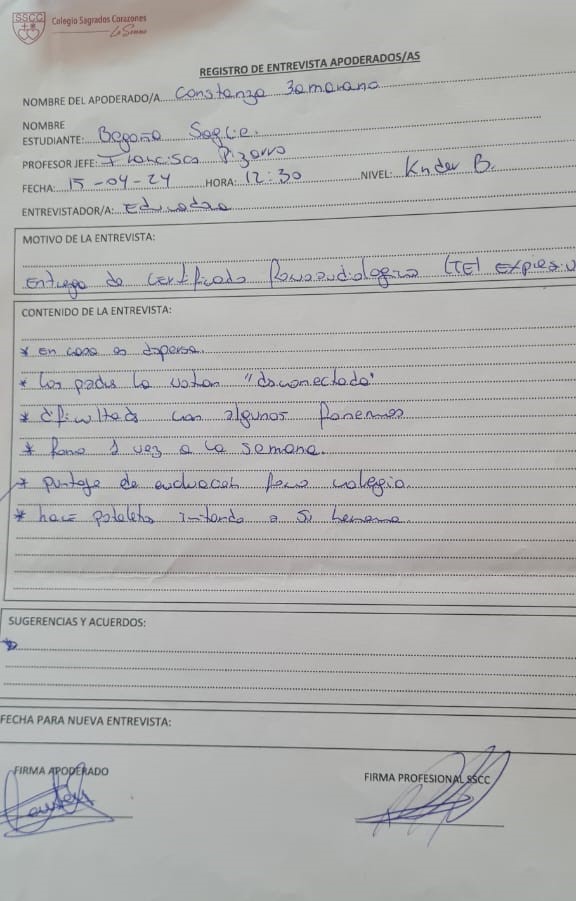 SSCC
Colegio Sagrados Corazones
La Serena
REGISTRO DE ENTREVISTA APODERADOS/AS
NOMBRE DEL APODERADO/A Constanza Zamorano
NOMBRE
ESTUDIANTE: Begoña
PROFESOR JEFE: Francisca Pizarro
FECHA: 15-04-24 HORA: 12:30 NIVEL: Knder B.
ENTREVISTADOR/A:
MOTIVO DE LA ENTREVISTA:
Entrega de certificado fonoaudiologico (TEL expresiv
CONTENIDO DE LA ENTREVISTA:
* En casa es dispersa.
* Los padres la notan "desconectada"
* dificultads con algunos fonemas
* fono 1 vez a la semana.
* puntaje de evaluacion fono colegio.
* hace pataletas imitando a su hermana
SUGERENCIAS Y ACUERDOS:
FECHA PARA NUEVA ENTREVISTA:
FIRMA APODERADO
FIRMA PROFESIONAL SSCC